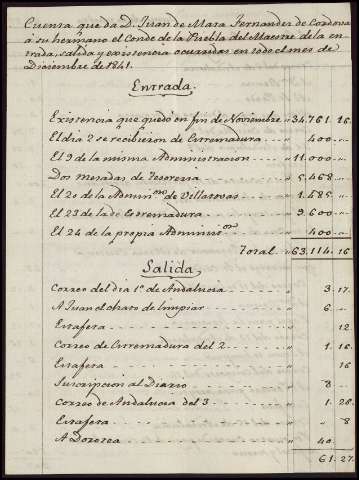 Cuenta que da D. Juan de Mata Fernandez de Cordova
á su hermano el Conde de la Puebla del Maestre de la en
trada, salida y existencia ocurridas en todo el mes de
Diciembre de 1841.
Entrada.
Existencia que quedó en fin de Noviembre " 34.761. 16.
El dia 2 se recibieron de Estremadura " 400. "
El 9 de la misma Administracion " 11.000. "
Dos mesadas de Tesoreria " 5.468. "
El 20 de la Admin.on de Villarosas " 1.485. "
El 23 de la de Estremadura " 9.600. "
El 24 de la propia Adminis.on " 400. "
Total " 63.114. 16
Salida.
Correo del dia 1.º de Andalucia " 3. 17.
A Juan el chato de limpiar " 6. "
Estafeta " " 12
Correo de Estremadura del 2 " 1. 16.
Estafeta " " 16
Suscripcion al Diario " 8. "
Correo de Andalucia del 3 " 1. 28.
Estafeta " " 8
A Dorotea " 40. "
61. 27.